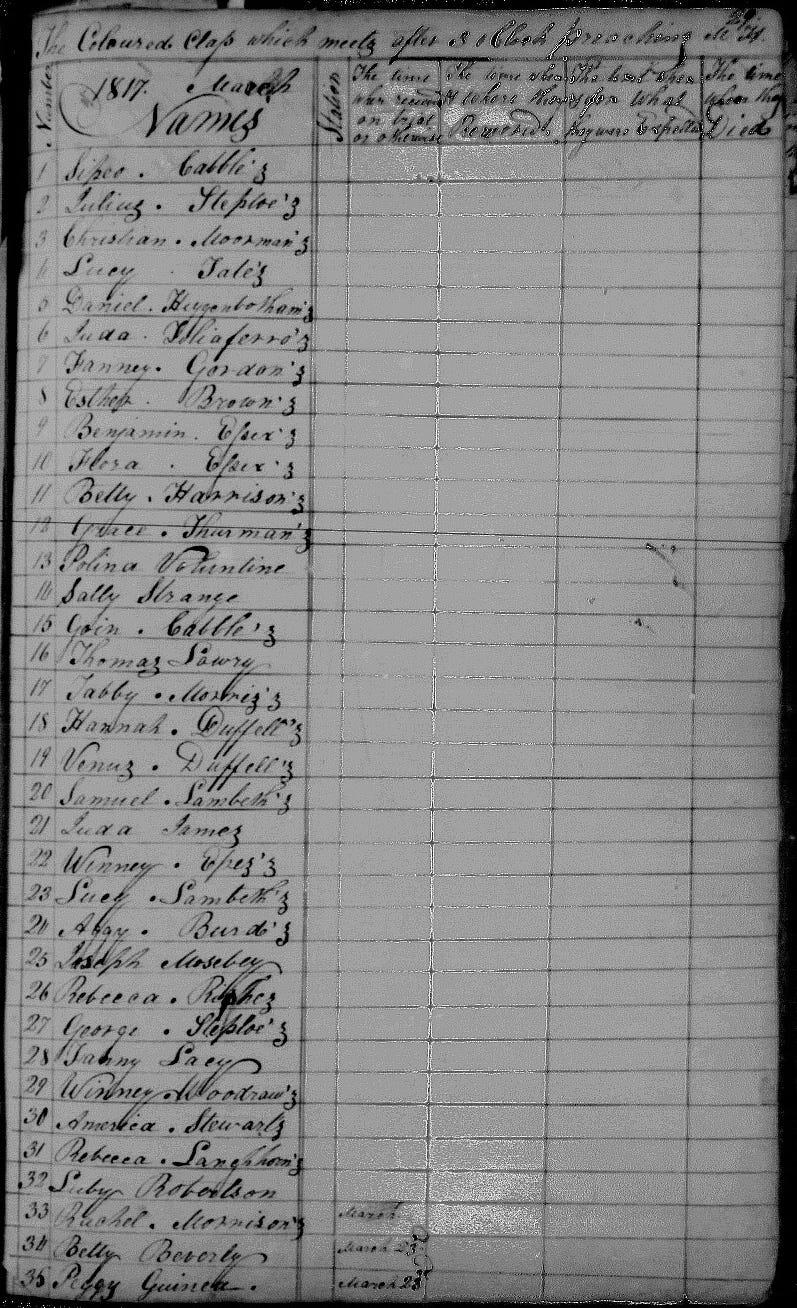 The Coloured Class which meets after 3 oClock preaching
Number
1817. March
Names
Station
The time when received on tryal or otherwise
The time when & where they Removed
The time when & for what they were Expelled
The time when they Died
1 Sipeo . Cabble's
2 Julius . Steptoe's
3 Christian . Moorman's
4 Lucy . Tate's
5 Daniel . Huggenbotham's
6 Juda . Toliaferro's
7 Fanney . Gordon's
8 Esther . Brown's
9 Benjamin . Essex's
10 Flora . Essex's
11 Betty . Harrison's
12 Grace . Thurman's
13 Polina Voluntine
14 Sally Strange
15 Goin . Cabble's
16 Thomas Lowry
17 Tabby . Morris's
18 Hannah . Duffell's
19 Venus . Duffell's
20 Samuel . Lambeth's
21 Juda James
22 Winney . Epes's
23 Lucy . Lambeth's
24 Aggy . Burd's
25 Joseph Mosebey
26 Rebecca .
27 George . Steptoe's
28 Fanny Lacy
29 Winney . Woodraw's
30 America . Stewarts
31 Rebecca . Langhhorn's
32 Luby Robertson
33 Rachel . Morrison's March
34 Betty Beverly March 23rd
35 Peggy Guinea . March 23rd